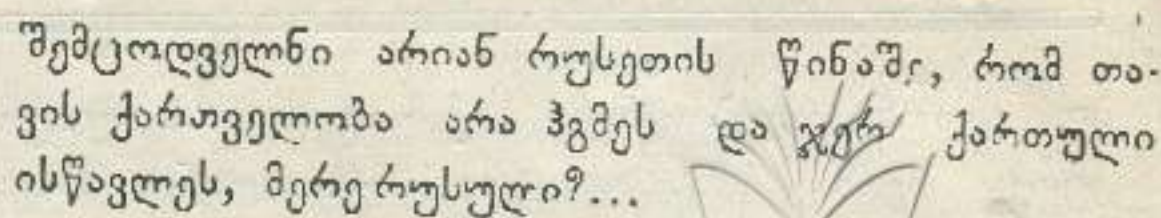 შემცოდველნი არიან რუსეთის წინაშე, რომ თა-
ვის ქართველობა არა ჰგმეს და ჯერ ქართული
ისწავლეს, მერე რუსული?...